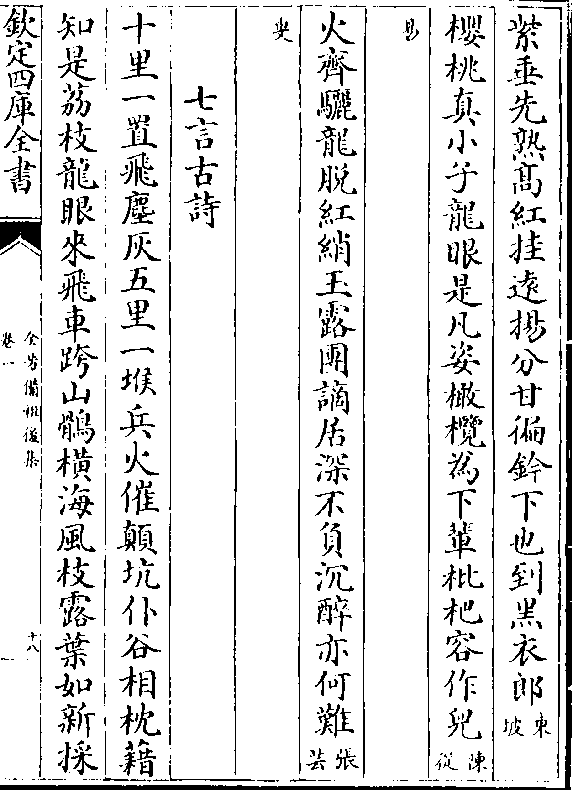 紫垂先熟髙紅挂遠揚分甘徧鈴下也到黒衣郎東坡
櫻桃真小子龍眼是凡姿橄欖為下輩枇杷容作兒陳從
易
火齊驪龍脱紅綃玉露團謫居深不負沉醉亦何難張芸
叟
七言古詩
十里一置飛塵灰五里一堠兵火催顛坑仆谷相枕藉
知是荔枝龍眼來飛車跨山鶻橫海風枝露葉如新採
欽定四庫全書
全芳備祖後集
卷一
十八